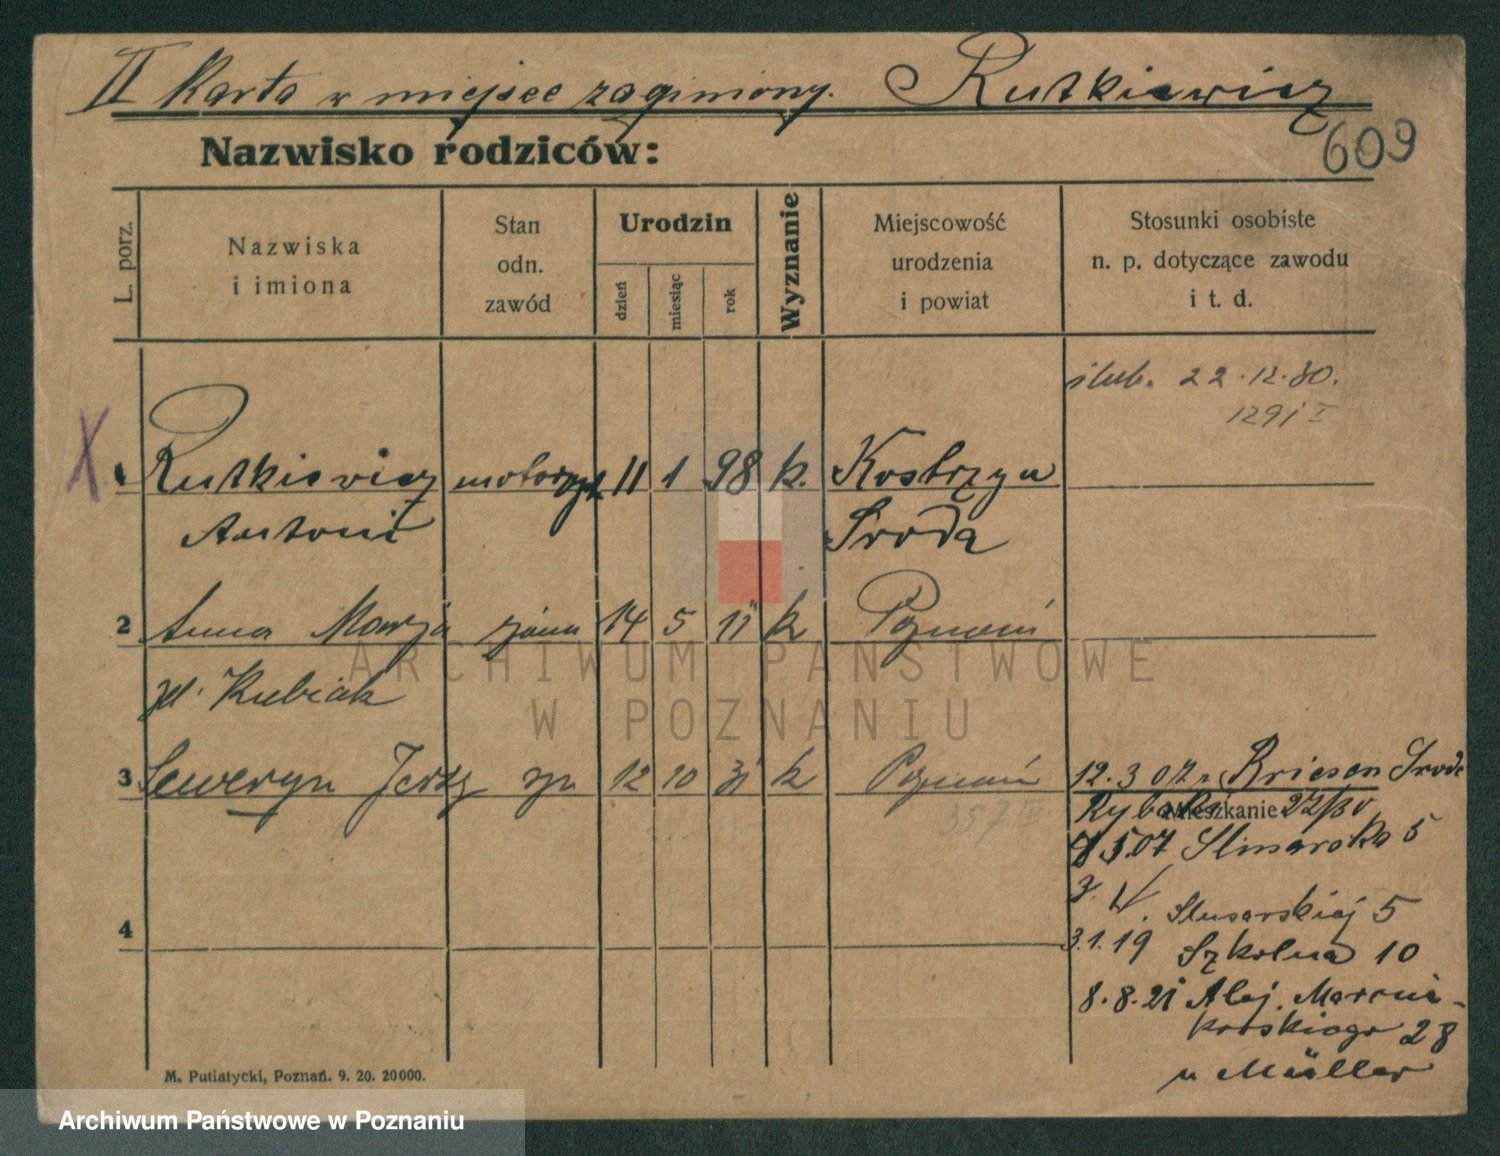 II Karta w miejsce zaginiony. Rutkiewicz
Nazwisko rodziców:
609
L. porz.
Nazwiska
i imiona
Stan
odn.
zawód
Urodzin
dzień
miesiąc
rok
Wyznanie
Miejscowość
urodzenia
i powiat
Stosunki osobiste
n. p. dotyczące zawodu
i t. d.
ślub. 22.12.30.
1291 I
X
1 Rutkiewicz motorzyst. 11 1 98 k. Kostrzyn
Antoni Środa
2 Anna Marja żona 14 5 11 k Poznań
zd. Kubiak
3 Seweryn Jerzy syn 12 10 31 k Poznań
357
12.3 07 Briesen Środa
Rybaki 22/30
Mieszkanie
5.07 Slusarska 5
Slusarskiej 5
4
3.1.19 Szkolna 10
8.8.21 Alej. Marcin-
kowskiego 28
u Müller
M. Putiatycki, Poznań. 9. 20. 20000.
ARCHIWUM PAŃSTWOWE
W POZNANIU
Archiwum Państwowe w Poznaniu